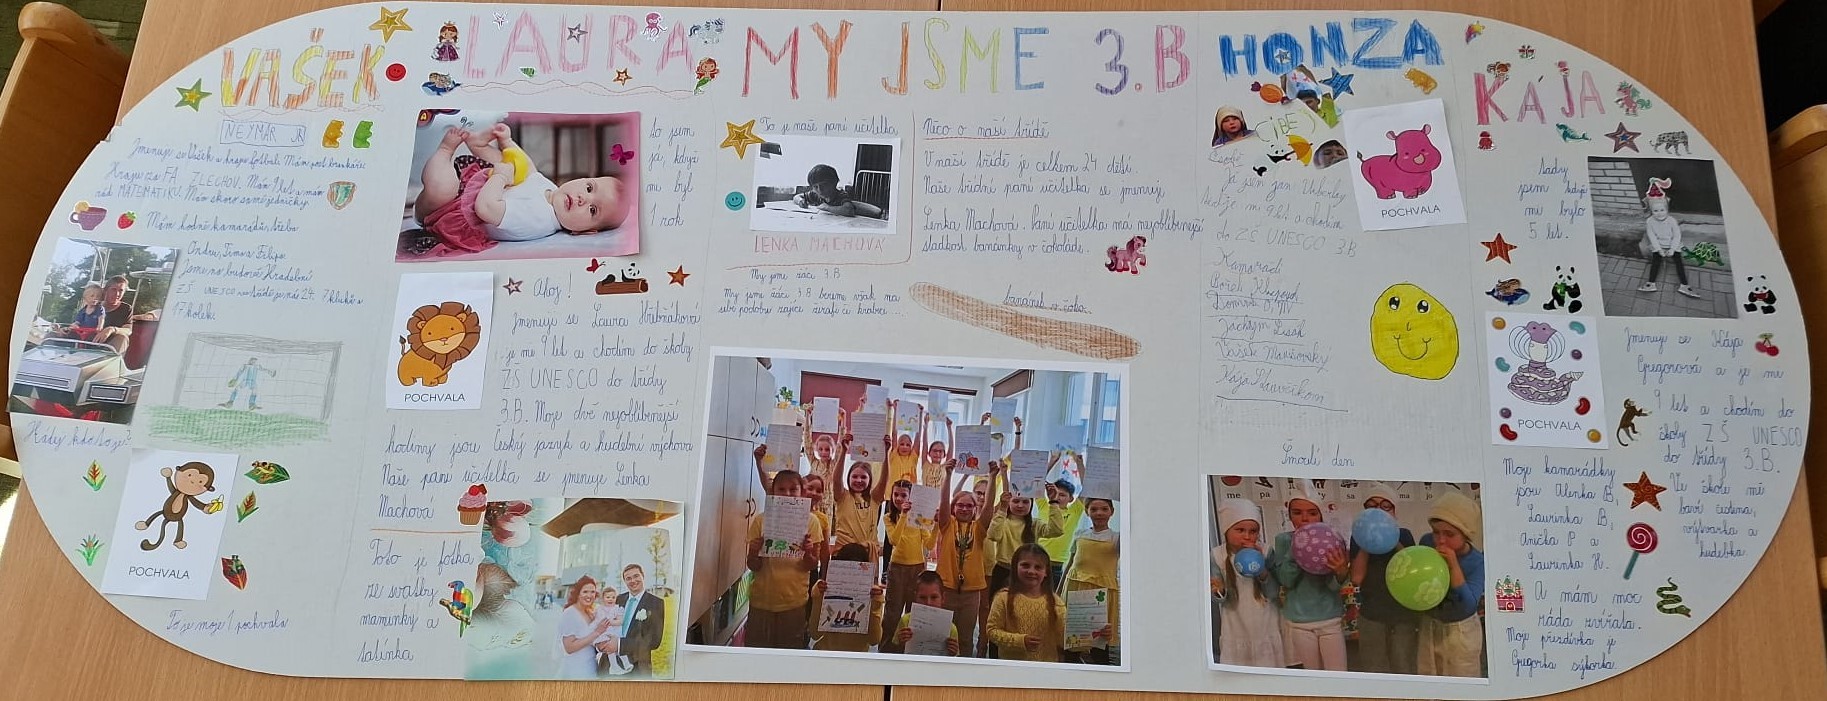 VAŠEK
NEYMÁR JR
Jmenuji se Vašek a hraju fotbal. Mám post brankáře
Hraju za FA ZLECHOV. Mám 9 let a mám
rád MATEMATIKU. Mám skoro samé jedničky.
Mám hodně kamarádů, třeba
Ondru, Tomva, Filipa
Jsme na budově Hradební
ZŠ UNESCO
17 holek.
Hádej kdo to je?
POCHVALA
To je moje 1. pochvala
LAURA
to jsem
já, když
mi byl
1 rok
POCHVALA
Ahoj!
Jmenuji se Laura
je mi 9 let a chodím do školy
ZŠ UNESCO do třídy
3.B. Moje dvě nejoblíbenější
hodiny jsou Český jazyk a hudební výchova
Naše paní učitelka se jmenuje Lenka
Machová
Toto je fotka
ze svatby
maminky a
tatínka
MY JSME 3.B
To je naše paní učitelka
LENKA MACHOVÁ
My jsme žáci 3.B
My jsme žáci 3.B bereme však na
sebe podobu zajíce žirafy či krávy...
Něco o naší třídě
V naší třídě je celkem 24 dětí.
Naše třídní paní učitelka se jmenuje
Lenka Machová. Paní učitelka má nejoblíbenější
sladkost banánky v čokoládě.
banánek v čoko.
HONZA
POCHVALA
Já jsem Jan
je mi 9 let a chodím
do ZŠ UNESCO 3.B
Kamarádi
Jáchym
Vašek
Kája
Šmoulí den
me pa sa ma jo
KÁJA
Tady
jsem když
mi bylo
5 let.
POCHVALA
Jmenuji se Kája
Gregorová a je mi
9 let a chodím do
školy ZŠ UNESCO
do třídy 3.B.
Ve škole mě
baví čeština,
výtvarka a
hudebka.
Moje kamarádky
jsou Alenka B,
Laurinka B,
Anička P a
Laurinka H.
A mám moc
ráda zvířata.
Moje přezdívka je
Gregorka sýkorka